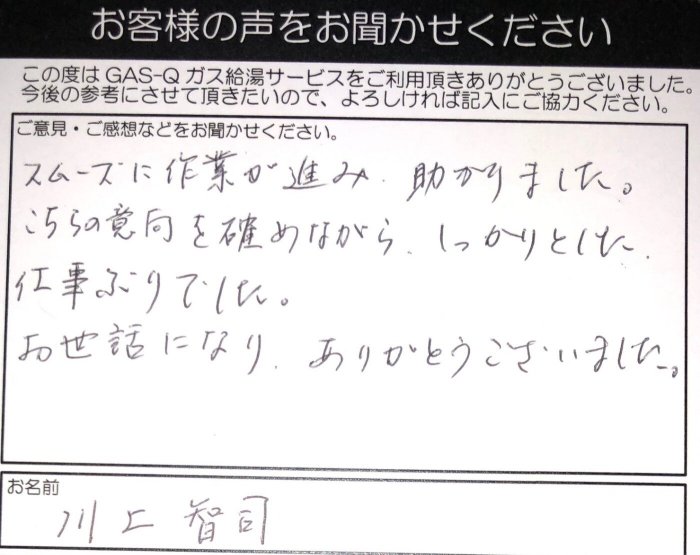 お客様の声をお聞かせください
この度は GAS-Q ガス給湯サービスをご利用頂きありがとうございました。
今後の参考にさせて頂きたいので、よろしければ記入にご協力ください。
ご意見・ご感想などをお聞かせください。
スムーズに作業が進み、助かりました。
こちらの意向を確めながら、しっかりとした、
仕事ぶりでした。
お世話になり、ありがとうございました。
お名前
川上 智司